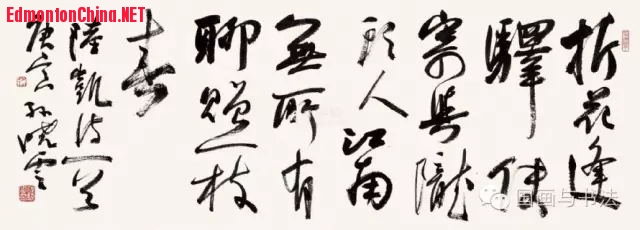 EdmontonChina.NET
折花逢
驛使
寄與隴
頭人江南
無所有
聊贈一枝
春
陸凱詩一首
庚寅孫曉雲
国画与书法